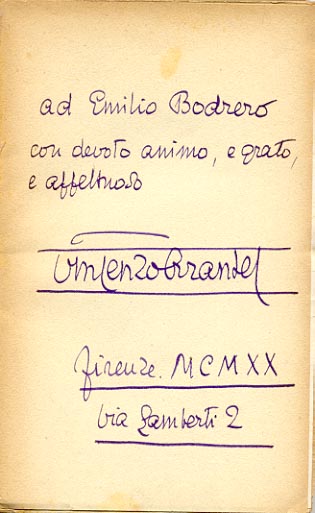 ad Emilio Bodrero
con devoto animo, e grato,
e affettuoso
Vincenzo Errante
Firenze. MCMXX
Via Lamberti 2